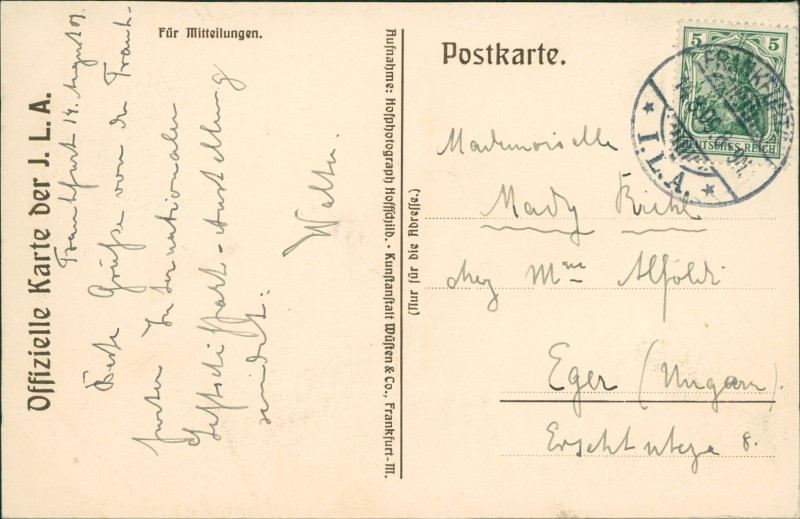 Offizielle Karte der J. L. A.
Für Mitteilungen.
Frankfurt 14. August 09.
Beste Grüße von der Frank-
furter Internationalen
Luftschiffart-Ausstellung
sendet
Walter.
Aufnahme: Hofphotograph Hoffschild. · Kunstanstalt Wüsten & Co., Frankfurt-M.
(Nur für die Adresse.)
Postkarte.
5 5
DEUTSCHES REICH
FRANKFURT
I.L.A.
Mademoiselle
Mady Kiehl
chez Mme Alföldi
Eger (Ungarn).
8.